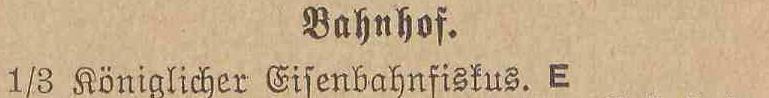 Bahnhof.
1/3 Königlicher Eisenbahnfiskus. E